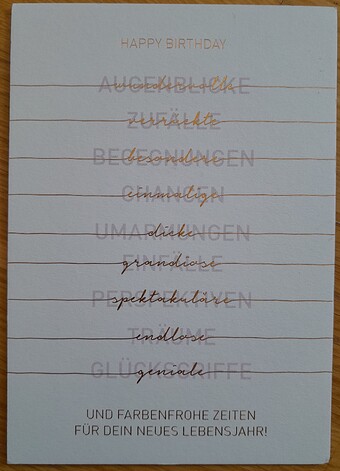 HAPPY BIRTHDAY
wundervolle
AUGENBLICKE
verrückte
ZUFÄLLE
besondere
BEGEGNUNGEN
einmalige
CHANCEN
dicke
UMARMUNGEN
grandiose
EINFÄLLE
spektakuläre
PERSPEKTIVEN
endlose
TRÄUME
geniale
GLÜCKSGRIFFE
UND FARBENFROHE ZEITEN
FÜR DEIN NEUES LEBENSJAHR!